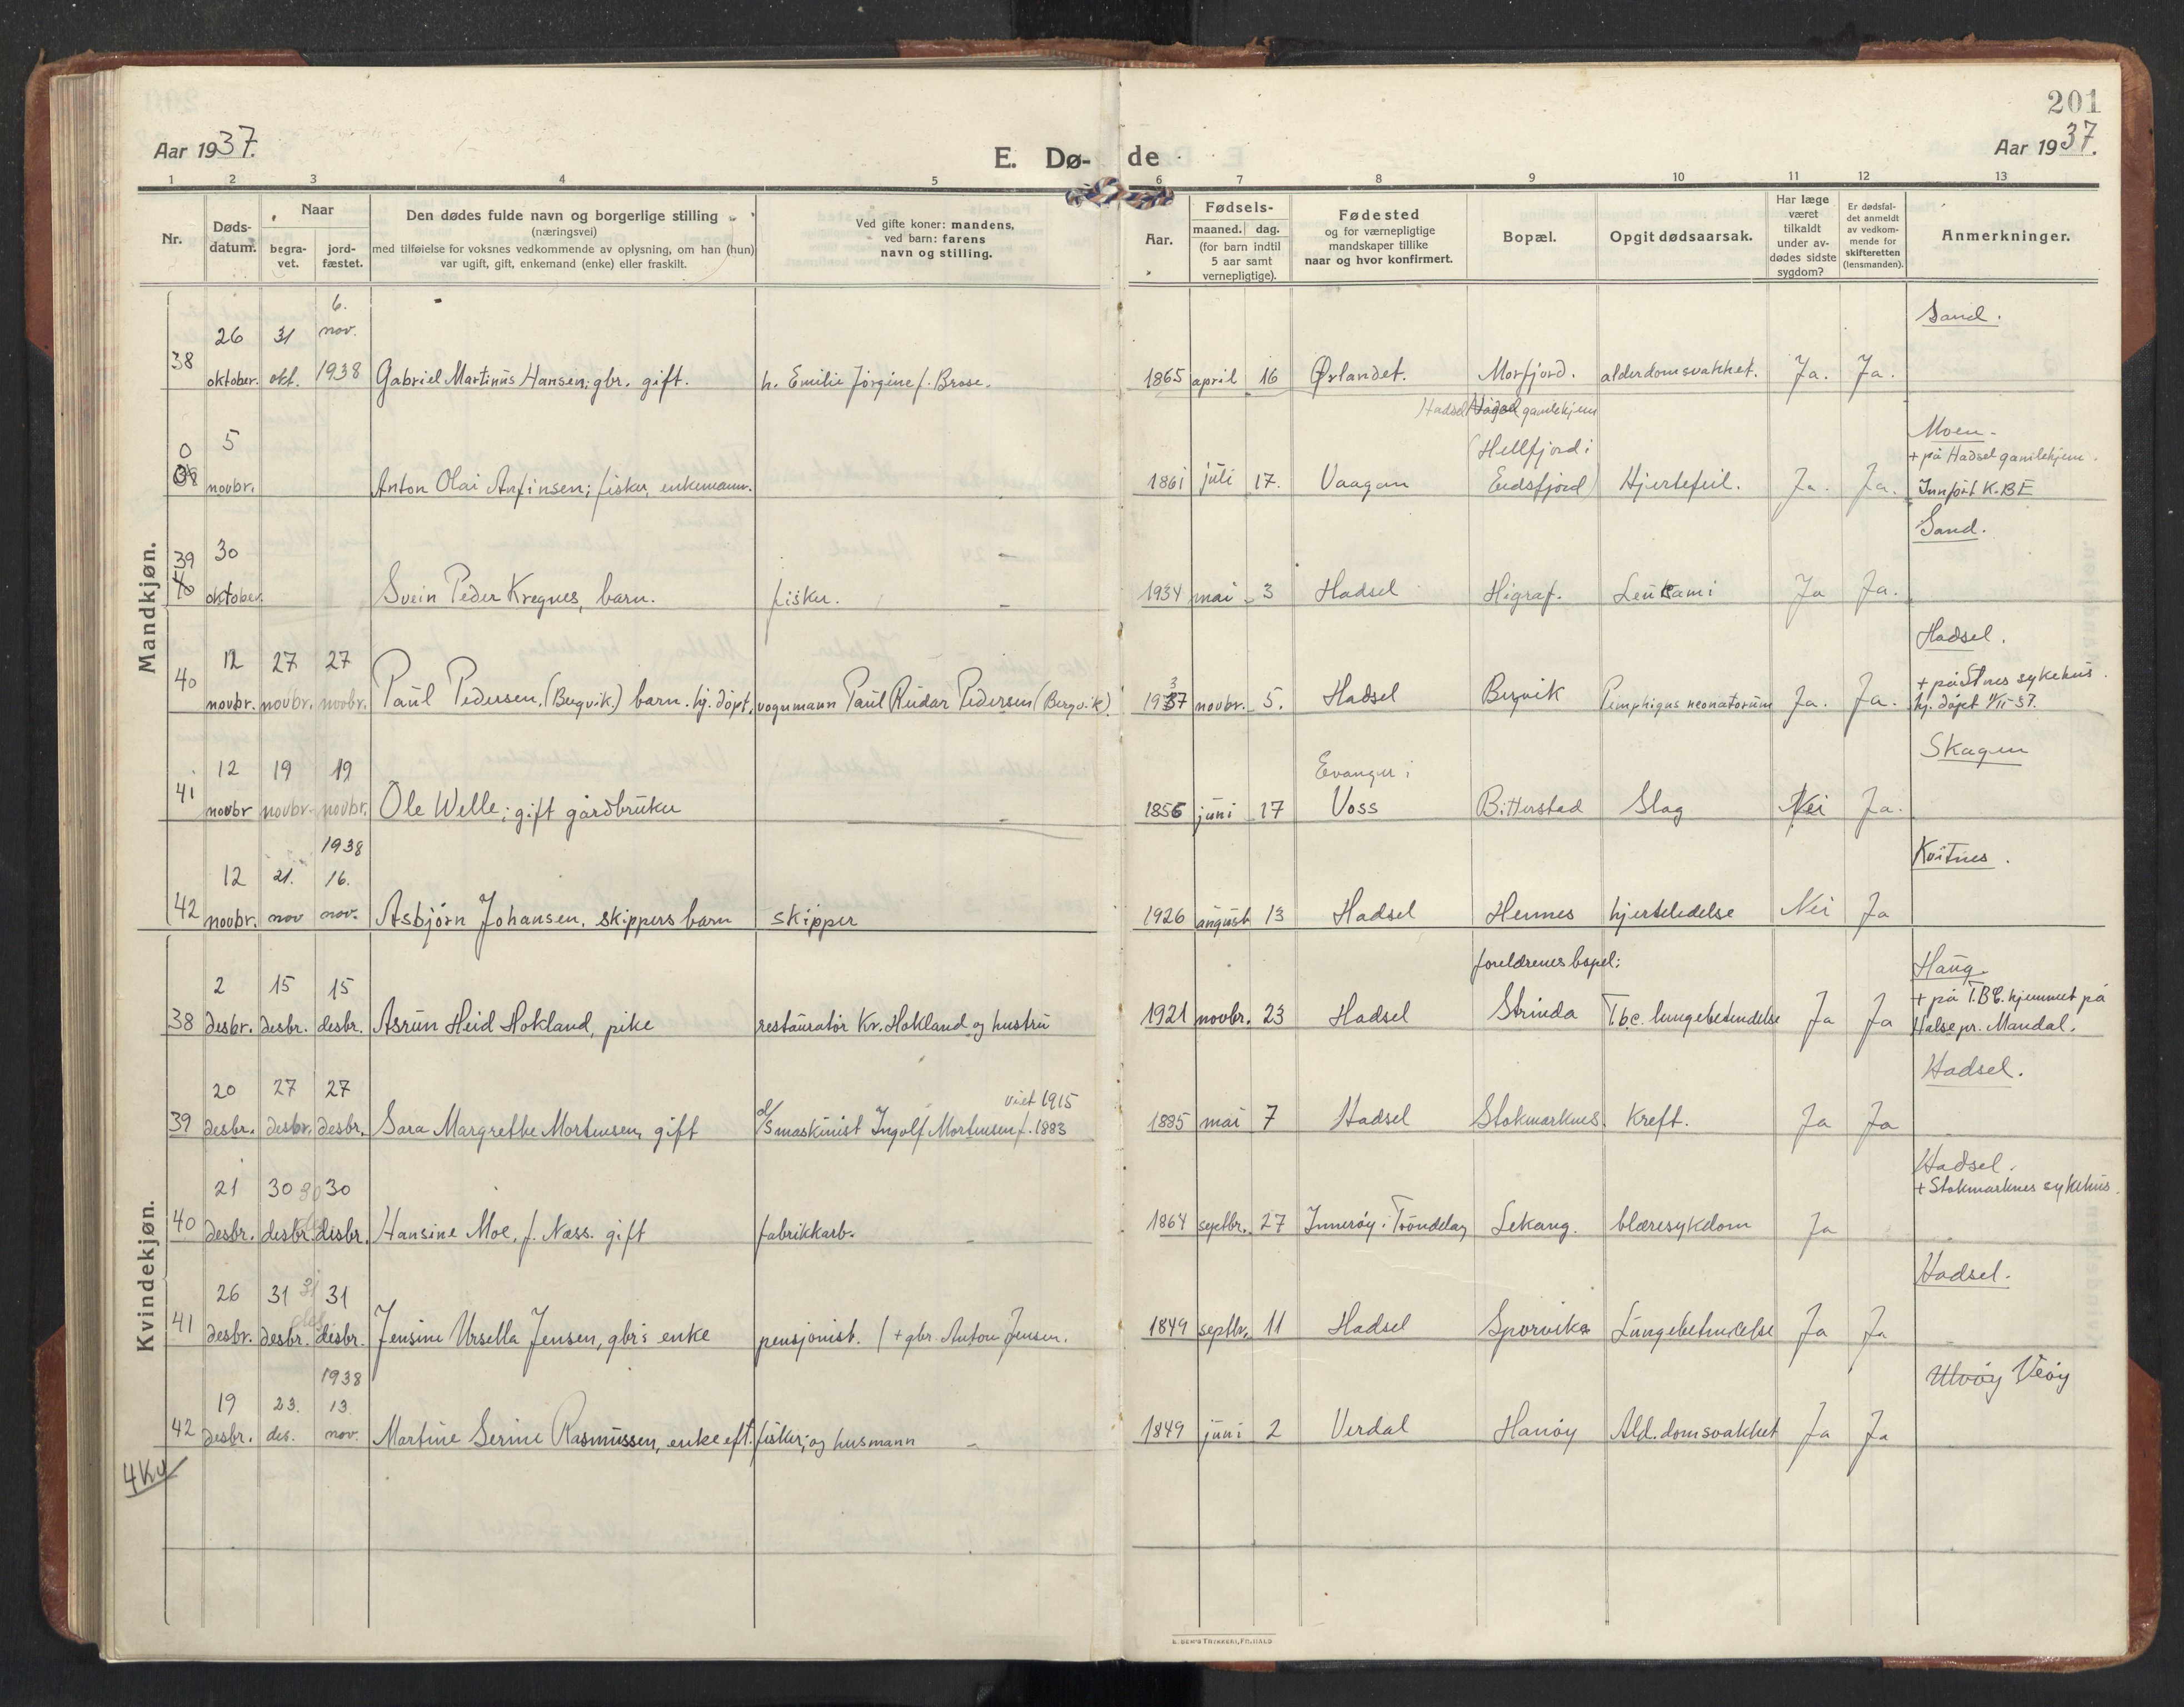 201
Aar 1937.
E. Dø-
de
Aar 1937.
1 2 3 4 5 6 7 8 9 10 11 12 13
Nr.
Døds-
datum.
Naar
begra-
vet.
jord-
fæstet.
Den dødes fulde navn og borgerlige stilling
(næringsvei)
med tilføielse for voksnes vedkommende av oplysning, om han (hun)
var ugift, gift, enkemand (enke) eller fraskilt.
Ved gifte koner: mandens,
ved barn: farens
navn og stilling.
Aar.
Fødsels-
maaned. dag.
(for barn indtil
5 aar samt
vernepligtige).
Fødested
og for værnepligtige
mandskaper tillike
naar og hvor konfirmert.
Bopæl.
Opgit dødsaarsak.
Har læge
været
tilkaldt
under av-
dødes sidste
sygdom?
Er dødsfal-
det anmeldt
av vedkom-
mende for
skifteretten
(lensmanden).
Anmerkninger.
Mandkjøn.
6. Sand.
26 31 nov.
38 oktober. okt. 1938 Gabriel Martinus Hansen; gbr. gift. h. Emilie Jörgine f. Brose. 1865 april 16 Ørlandet. Morfjord. alderdomsvakhet. Ja. Ja.
Hadsel gamlehjem
0 5 (Hellfjord i Moen
+ på Hadsel gamlehjem.
38 novbr. Anton Olai Anfinsen; fisker, enkemann. 1861 juli 17. Vaagan Eidsfjord) Hjertefeil. Ja. Ja. Innført K.BE
39 30 Sand.
40 oktober. Svein Peder Kregnes, barn. fisker. 1934 mai 3 Hadsel Higraf. Leukami Ja Ja.
12 27 27 Hadsel.
+ på Stnes sykehus.
40 novbr. novbr. novbr. Paul Pedersen, (Bergvik.) barn. hj. døpt. vognmann Paul Reidar Pedersen (Bergvik). 1937 novbr. 5. Hadsel Bergvik Pemphigus neonatorum Ja. Ja. hj. døpt 11/11-37.
12 19 19 Evanger i Skagen
41 novbr novbr. novbr. Ole Welle; gift gårdbruker 1856 juni 17 Voss Bitterstad Slag Nei Ja.
1938
12 21. 16. Kvitnes.
42 novbr. nov nov. Asbjörn Johansen, skippers barn skipper 1926 august 13 Hadsel Hennes hjertelidelse Nei Ja
Kvindekjøn.
foreldrenes bopel: Haug.
2 15 15 + på T.B.C. hjemmet på
38 desbr. desbr. desbr. Asrun Heid Hokland, pike restauratör Kr. Hokland og hustru 1921 novbr. 23 Hadsel Strinda T.b.c. lungebetendelse Ja Ja Halse pr. Mandal.
20 27 27 viet 1915 Hadsel.
39 desbr. desbr. desbr. Sara Margrethe Mortensen, gift d/s maskinist Ingolf Mortensen f. 1883 1885 mai 7 Hadsel Stokmarknes. Kreft. Ja Ja
21 30 30 30 Hadsel.
+ Stokmarknes sykehus.
40 desbr. desbr. desbr. Hansine Moe, f. Næss. gift fabrikkarb. 1864 septbr. 27 Innerøy i Trøndelag Lekang. blæresykdom Ja
26 31 31 31 Hadsel.
41 desbr. desbr. desbr. Jensine Ursella Jensen, gbr's enke pensjonist. (+ gbr. Anton Jensen. 1849 septbr. 11 Hadsel Sporvika Lungebetendelse Ja Ja
1938
19 23. 13. Ulvøy Veöy
42 desbr. des. nov. Martine Serine Rasmussen, enke eft. fisker; og husmann 1849 juni 2 Verdal Hanøy Ald.domsvakhet Ja Ja
4 Kv